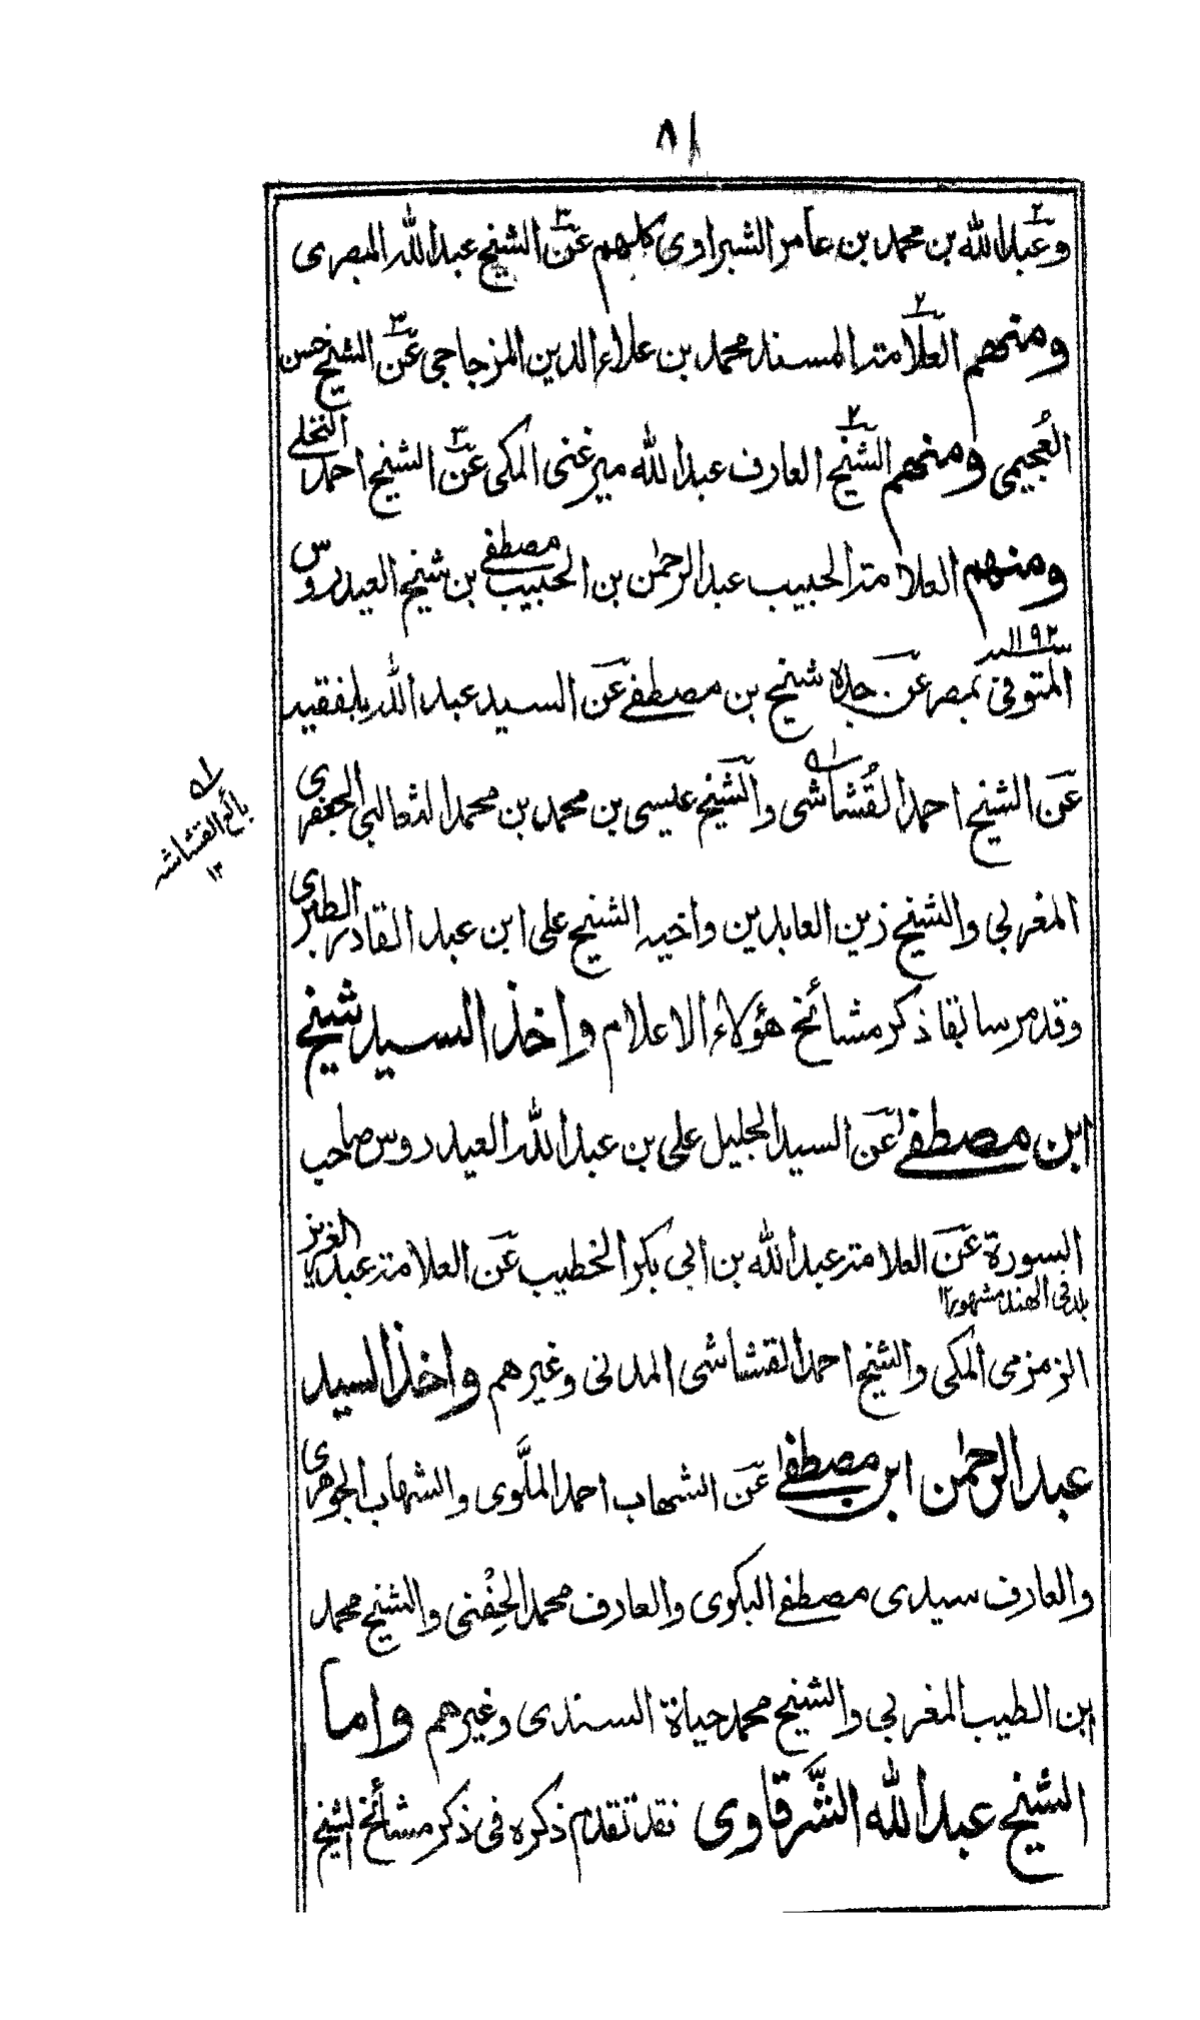 ٨١
وعبدالله بن محمد بن عامر الشبراوی کلهم عن الشیخ عبدالله البصری
ومنهم العلامة المسند محمد بن علاء الدین المزجاجی عن الشیخ حسن
العُجیمی ومنهم الشیخ العارف عبدالله میرغنی المکی عن الشیخ احمد النخلی
ومنهم العلامة الحبیب عبدالرحمٰن بن الحبیب مصطفی بن شیخ العیدروس
المتوفی بمصر سنة ١١٩٢ عن جده شیخ بن مصطفی عن السید عبدالله بلفقیه
عن الشیخ احمد القُشاشی والشیخ عیسی بن محمد بن محمد الثعالبی الجعفری
بائع القشاشه ١٢
المغربی والشیخ زین العابدین واخیه الشیخ علی ابن عبد القادر الطبری
وقد مر سابقا ذکر مشائخ هؤلاء الاعلام واخذ السید شیخ
ابن مصطفی عن السید الجلیل علی بن عبدالله العیدروس صاحب
السورة عن العلامة عبدالله بن ابی بکر الخطیب عن العلامة عبد العزیز
بلد فی الهند مشهور ١٢
الزمزمی المکی والشیخ احمد القشاشی المدنی وغیرهم واخذ السید
عبدالرحمٰن ابن مصطفی عن الشهاب احمد الملَّوی والشهاب الجوهری
والعارف سیدی مصطفی البکری والعارف محمد الحِفْنی والشیخ محمد
ابن الطیب المغربی والشیخ محمد حیاة السندی وغیرهم واما
الشیخ عبدالله الشَّرقاوی فقد تقدم ذکره فی ذکر مشائخ الشیخ